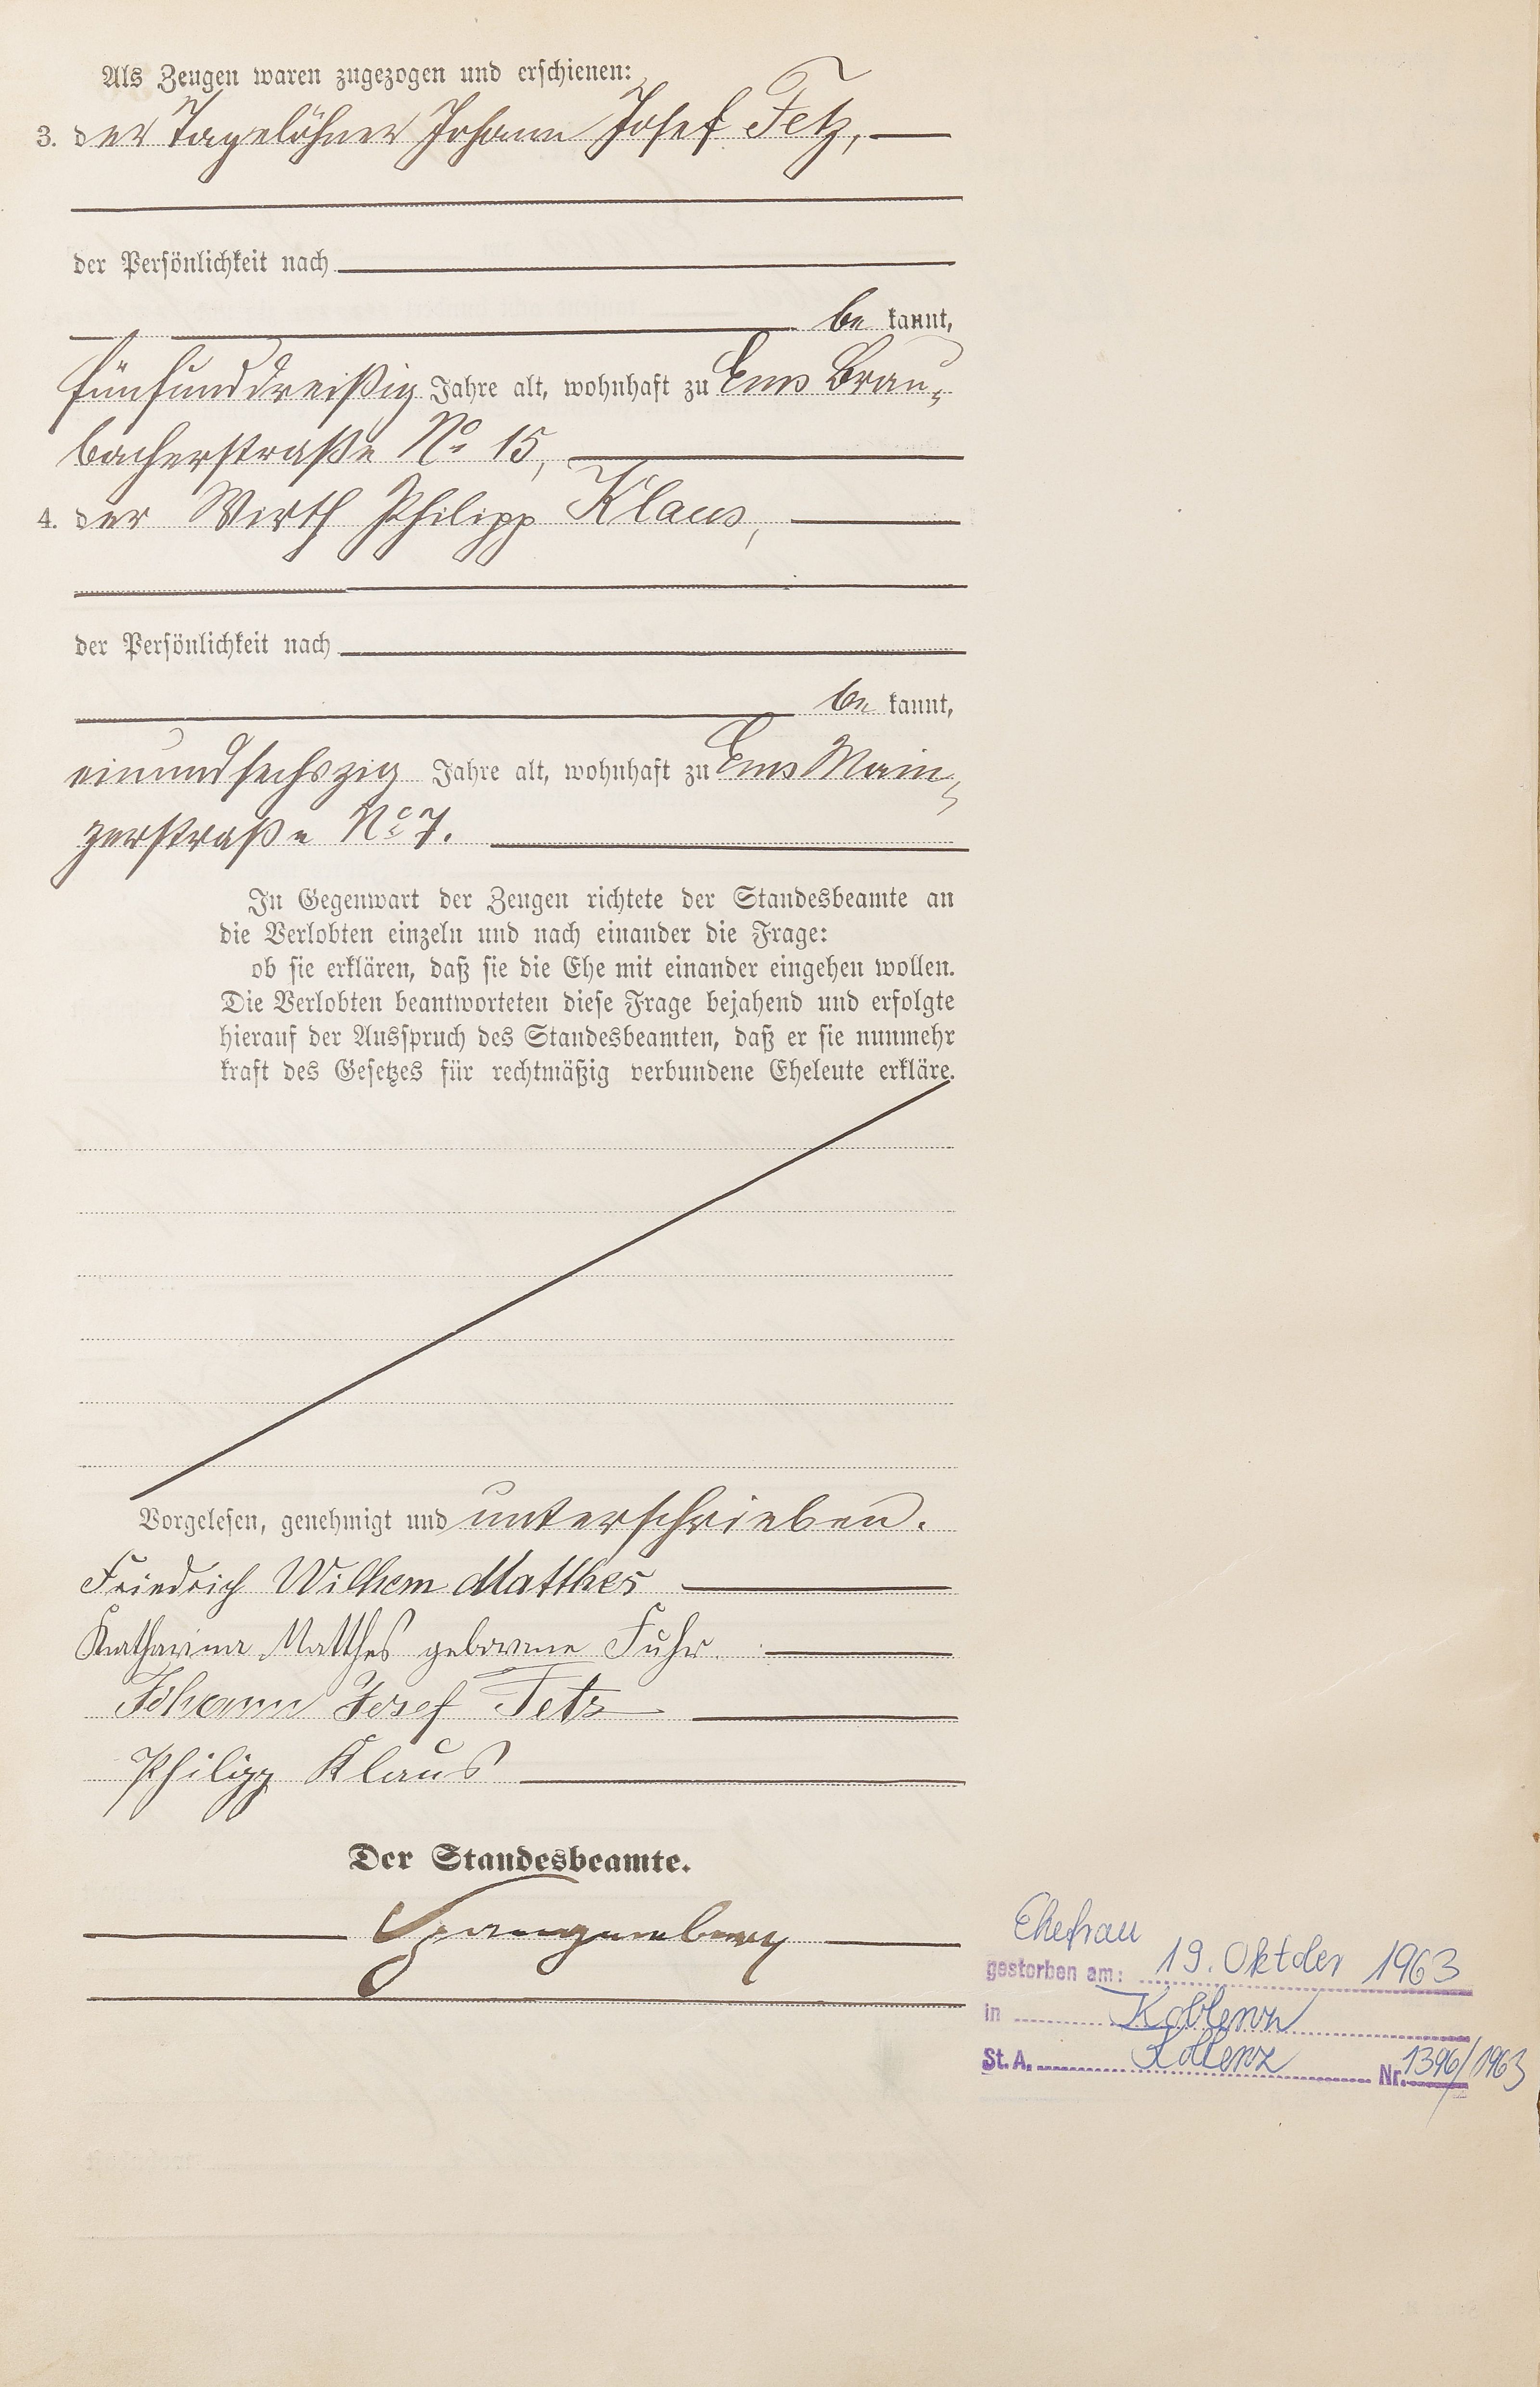 Als Zeugen waren zugezogen und erschienen:
3. der Tagelöhner Johann Josef Fetz,
der Persönlichkeit nach
be kannt,
fünfunddreißig Jahre alt, wohnhaft zu Ems Brau-
bacherstraße No 15,
4. der Wirth Philipp Klaus,
der Persönlichkeit nach
be kannt,
einundsechszig Jahre alt, wohnhaft zu Ems Main-
zerstraße No 7.
In Gegenwart der Zeugen richtete der Standesbeamte an
die Verlobten einzeln und nach einander die Frage:
ob sie erklären, daß sie die Ehe mit einander eingehen wollen.
Die Verlobten beantworteten diese Frage bejahend und erfolgte
hierauf der Ausspruch des Standesbeamten, daß er sie nunmehr
kraft des Gesetzes für rechtmäßig verbundene Eheleute erkläre.
Vorgelesen, genehmigt und unterschrieben.
Friedrich Wilhem Matthes
Katharina Matthes geborene Fuhr.
Johann Josef Fetz
Philipp Klaus
Der Standesbeamte.
Spangenberg
Ehefrau
gestorben am: 19. Oktober 1963
in Koblenz
St. A. Koblenz Nr. 1396/1963